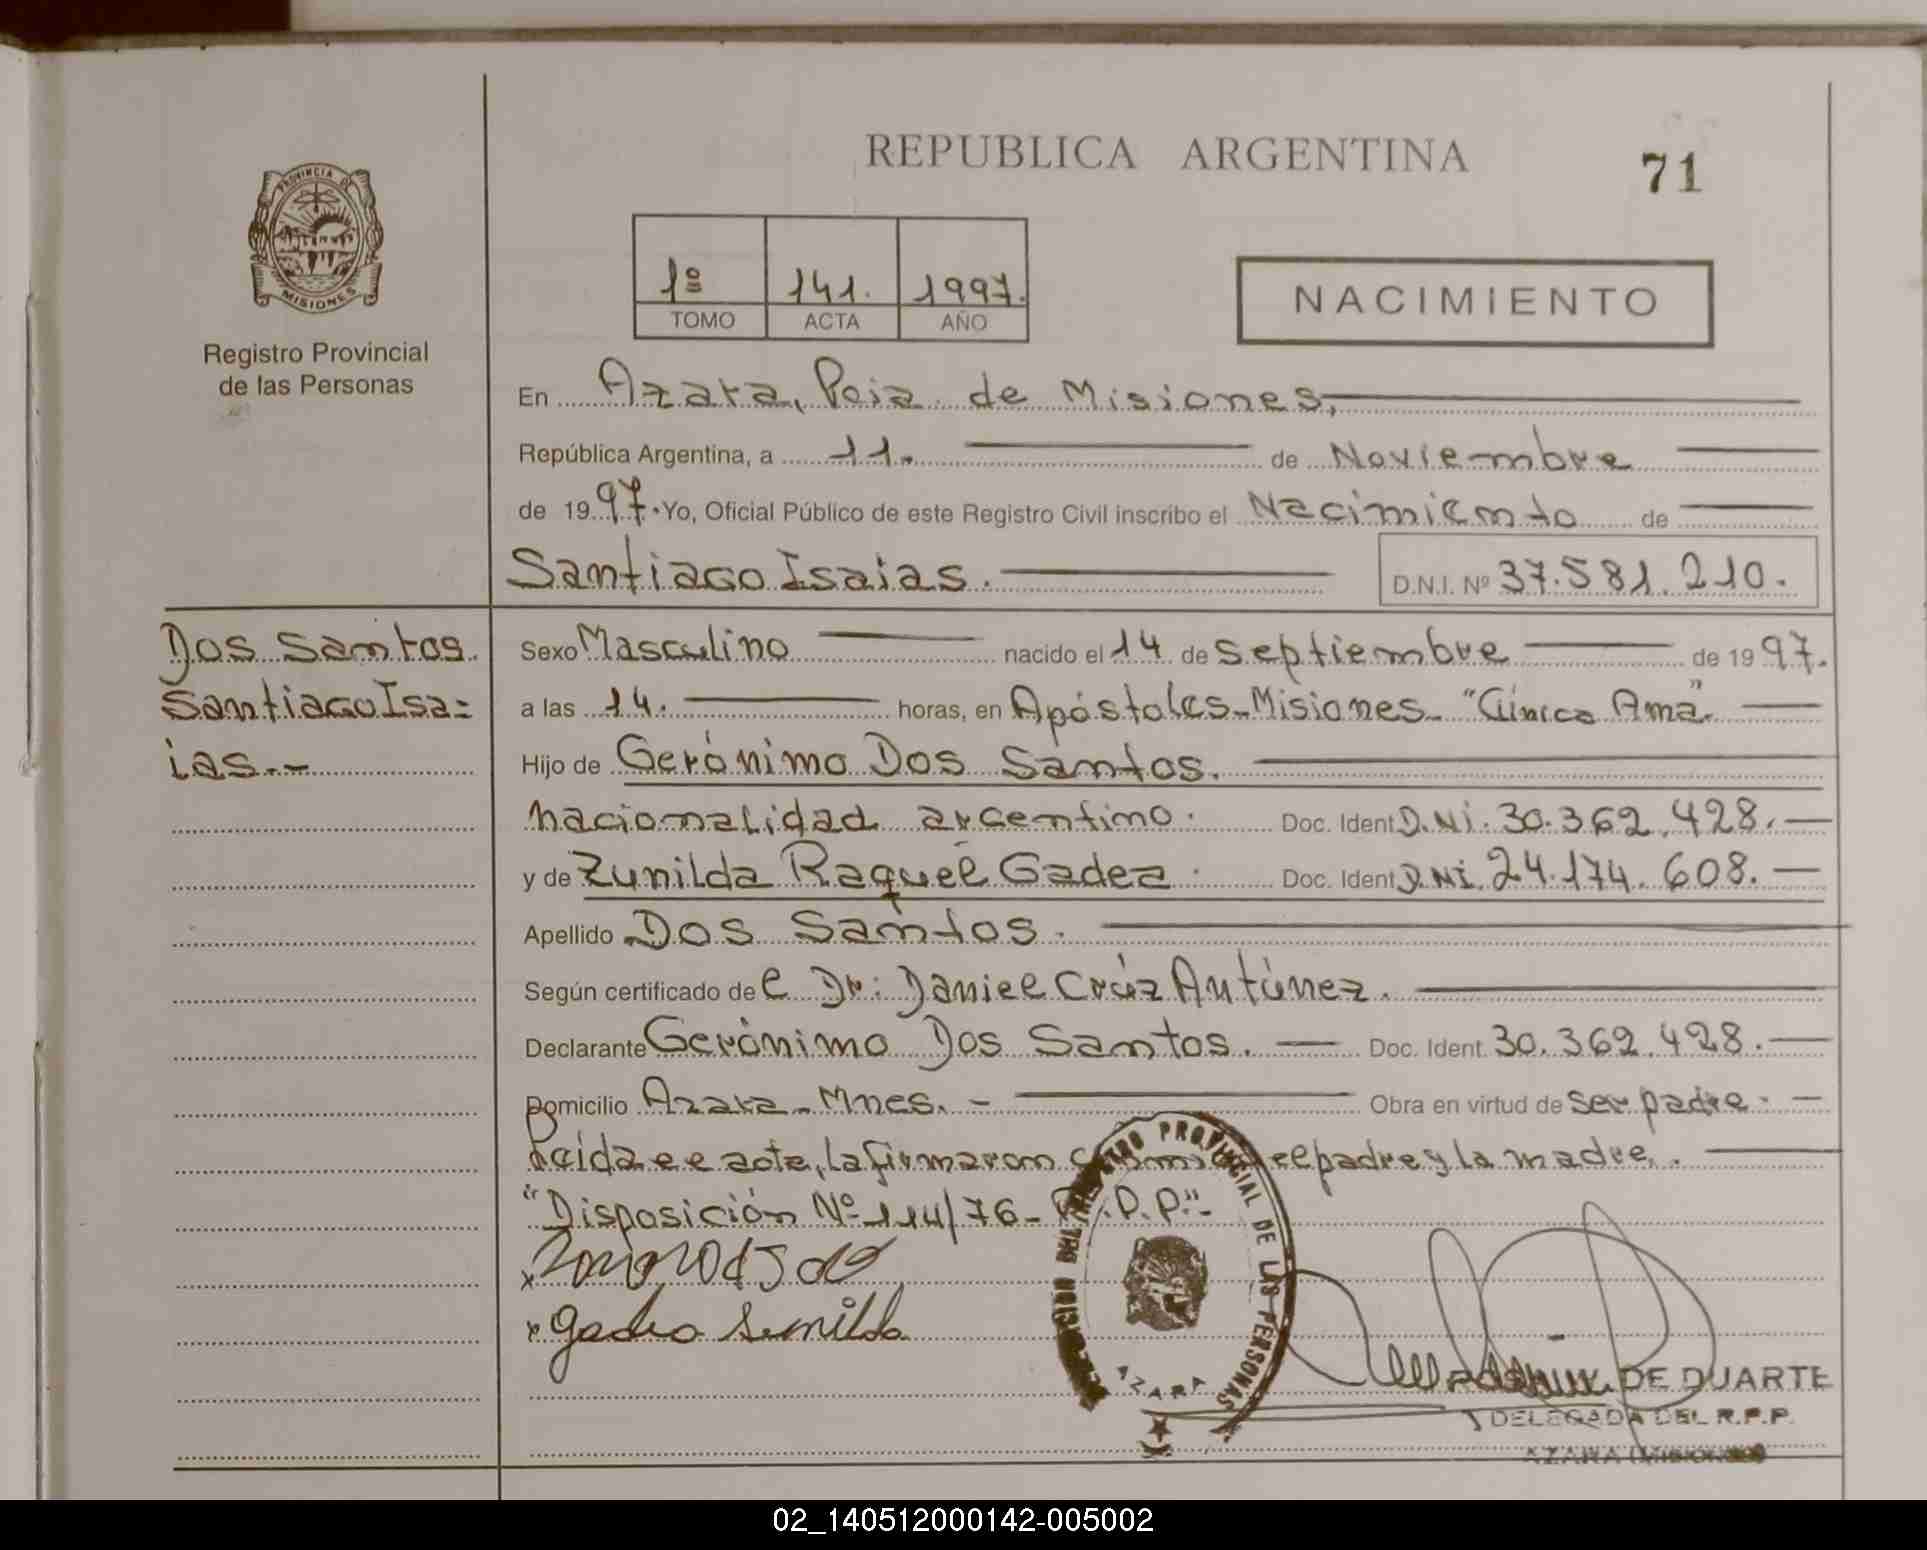 REPUBLICA ARGENTINA
71
PROVINCIA DE
MISIONES
Registro Provincial
de las Personas
1º 141. 1997.
TOMO ACTA AÑO
NACIMIENTO
En Azara, Pcia de Misiones,
República Argentina, a 11. de Noviembre
de 1997. Yo, Oficial Público de este Registro Civil inscribo el Nacimiento de
Santiago Isaias. D.N.I. Nº 37.581.210.
Dos Santos.
Santiago Isa=
ias.-
Sexo Masculino nacido el 14 de septiembre de 1997.
a las 14. horas, en Apóstoles-Misiones- "Clínica Ama"
Hijo de Gerónimo Dos Santos.
nacionalidad argentino. Doc. Ident D.Ni. 30.362.428.-
y de Zunilda Raquel Gadea. Doc. Ident D.Ni. 24.174.608.-
Apellido Dos Santos.
Según certificado de l Dr: Daniel Crúz Antúnez.
Declarante Gerónimo Dos Santos. Doc. Ident. 30.362.428.-
Domicilio Azara-Mnes.- Obra en virtud de ser padre.-
Leida el acta, la firmaron el padre y la madre.
"Disposición Nº 114/76- R.P.P."-
x
x gadea Sunilda
REGISTRO PROVINCIAL DE LAS PERSONAS
AZARA
DE DUARTE
DELEGADA DEL R.P.P.
AZARA (Misiones)
02_140512000142-005002